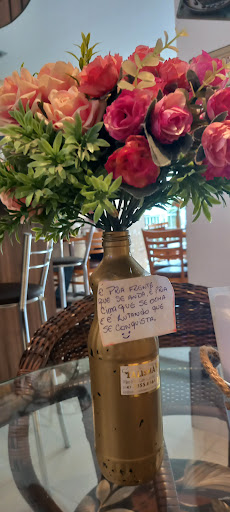 É PRA FRENTE
QUE SE ANDA É PRA
CIMA QUE SE OLHA
E É LUTANDO QUE
SE CONQUISTA.